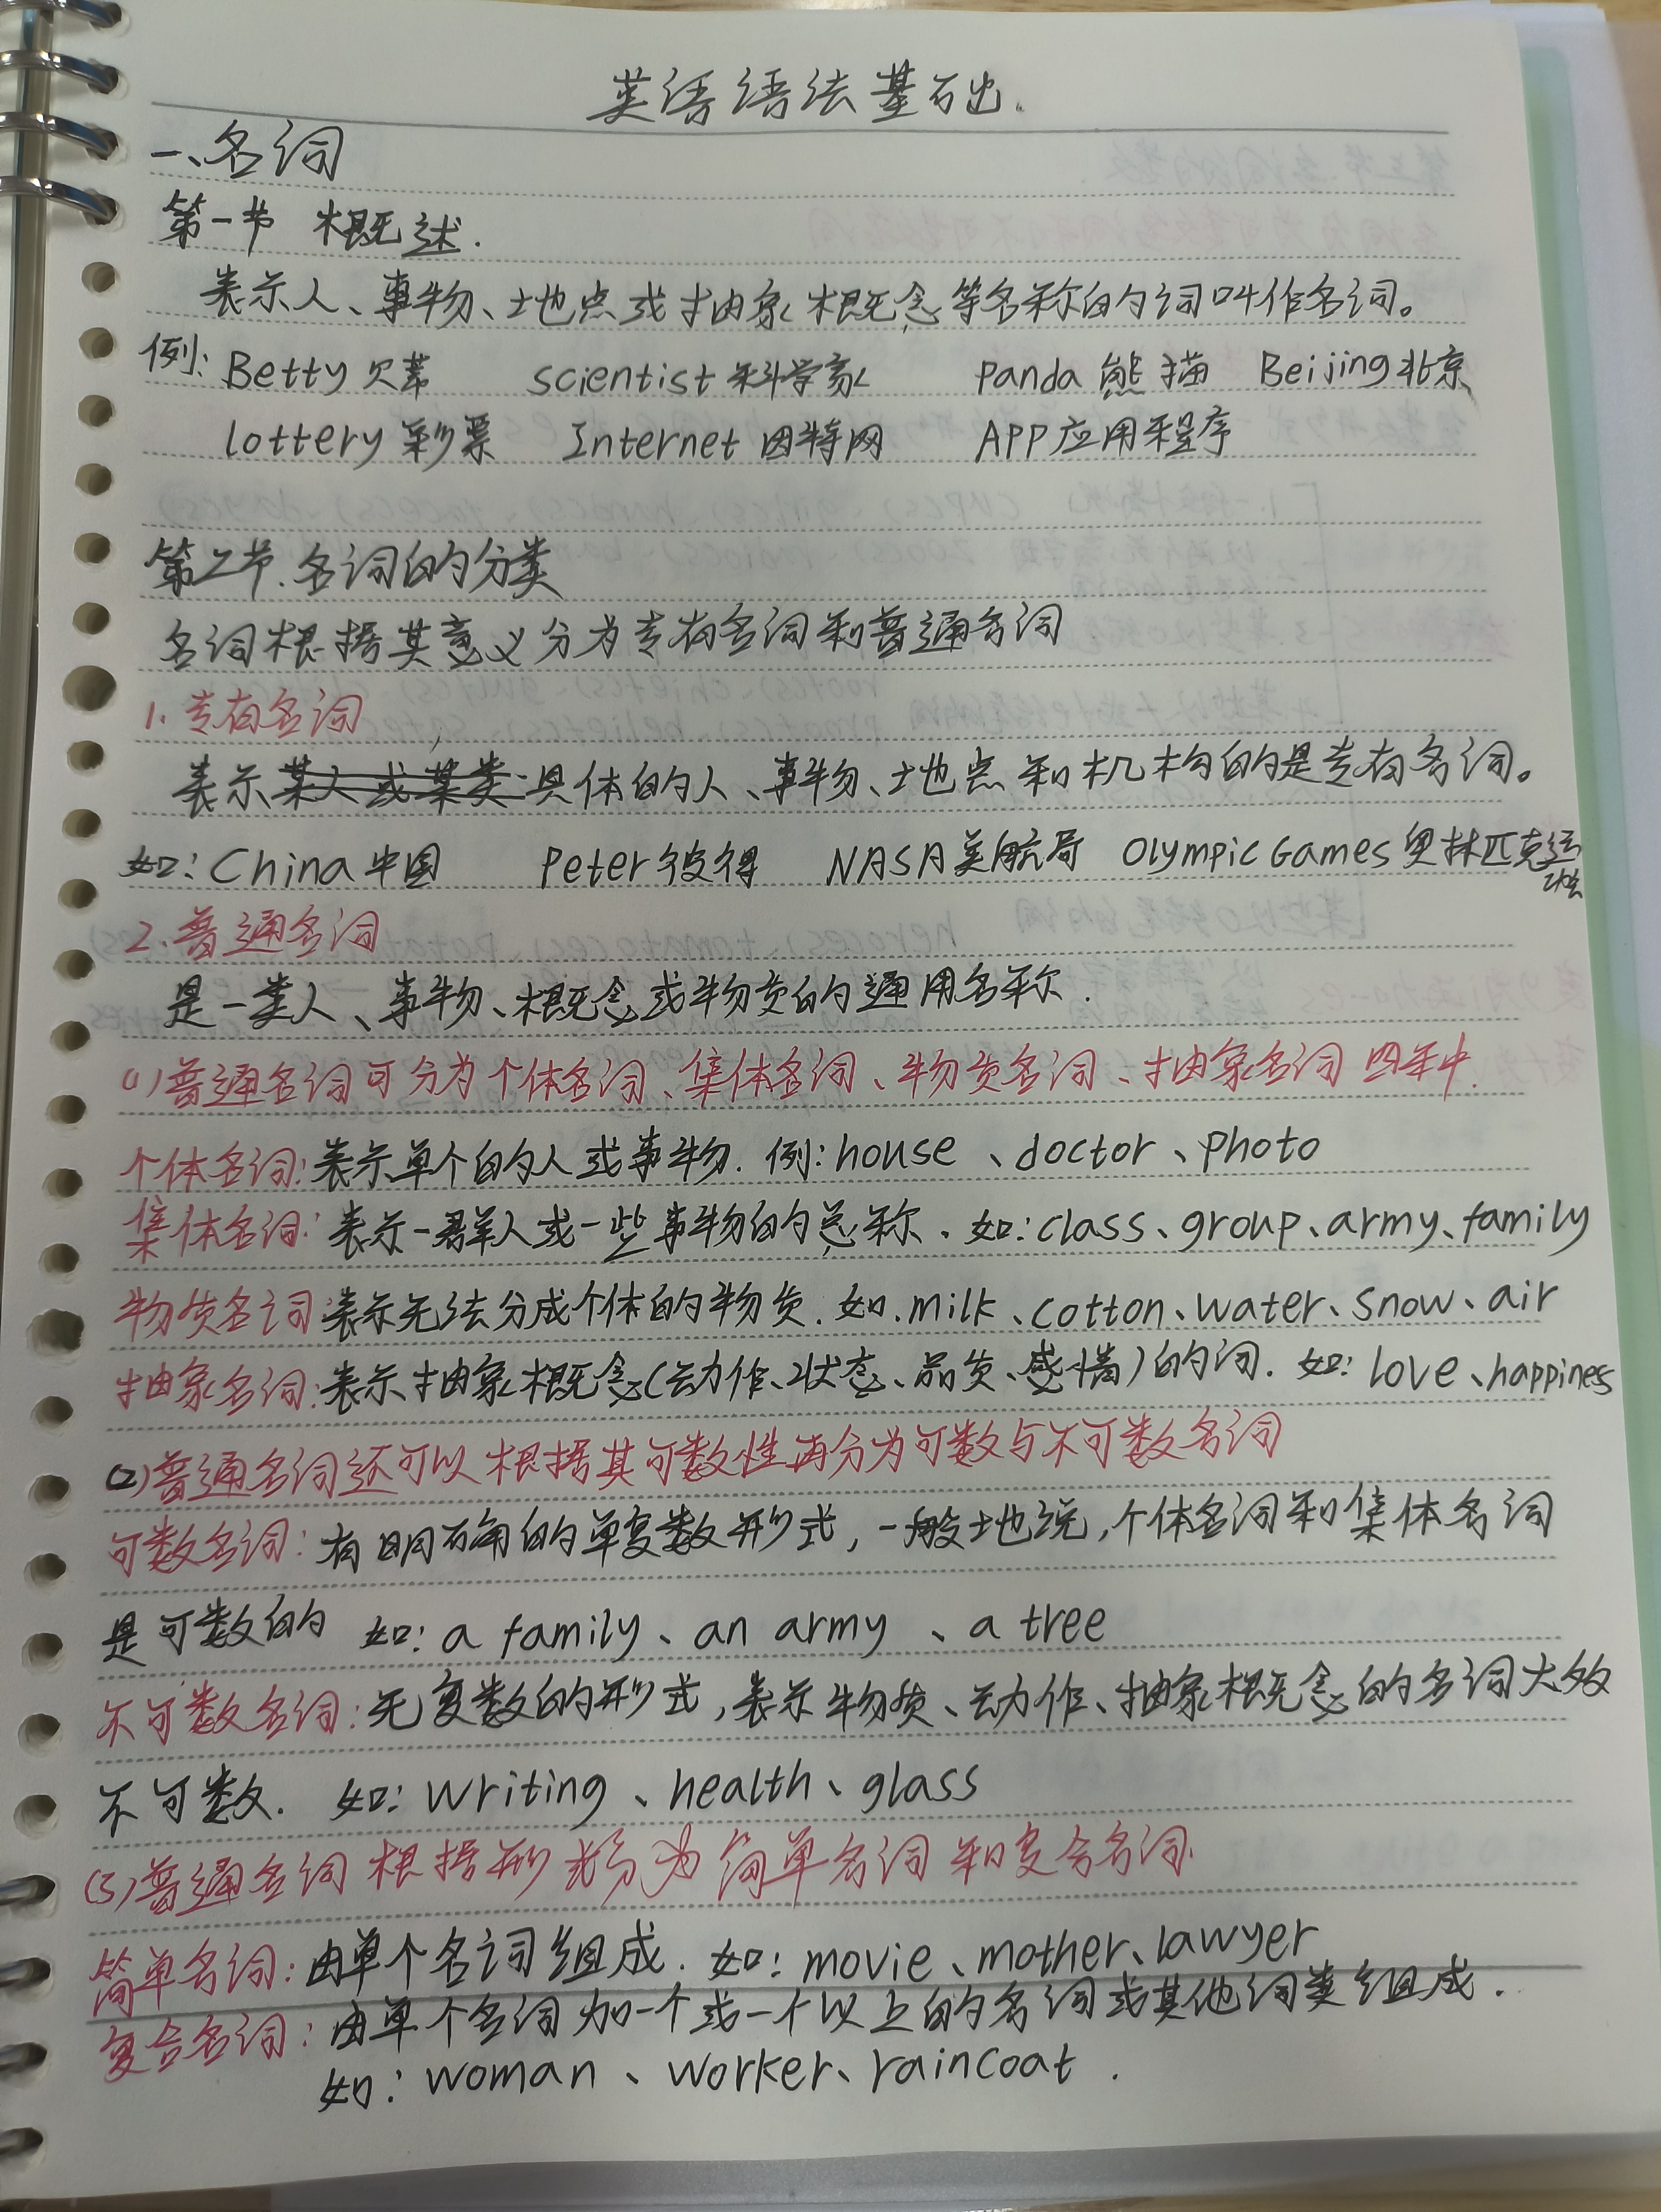 英语语法基础.
一、名词
第一节 概述.
表示人、事物、地点或抽象概念等名称的词叫作名词。
例: Betty 贝蒂 scientist 科学家 panda 熊描 Beijing 北京
lottery 彩票 Internet 因特网 APP 应用程序
第二节.名词的分类
名词根据其意义分为专有名词和普通名词
1.专有名词
表示某人或某类具体的人、事物、地点和机构的是专有名词。
如: China 中国 Peter 彼得 NASA 美航局 Olympic Games 奥林匹克运动会
2.普通名词
是一类人、事物、概念或物质的通用名称.
(1)普通名词可分为个体名词、集体名词、物质名词、抽象名词四种.
个体名词:表示单个的人或事物. 例: house、doctor、photo
集体名词:表示一群人或一些事物的总称. 如: class、group、army、family
物质名词:表示无法分成个体的物质. 如.milk、cotton、water、snow、air
抽象名词:表示抽象概念(动作、状态、品质、感情)的词. 如: love、happiness
(2)普通名词还可以根据其可数性再分为可数与不可数名词
可数名词:有明确的单复数形式,一般地说,个体名词和集体名词
是可数的 如: a family、an army、a tree
不可数名词:无复数的形式,表示物质、动作、抽象概念的名词大多
不可数. 如: writing、health、glass
(3)普通名词根据形式分为简单名词和复合名词.
简单名词:由单个名词组成. 如: movie、mother、lawyer
复合名词:由单个名词加一个或一个以上的名词或其他词类组成.
如: woman、worker、raincoat.